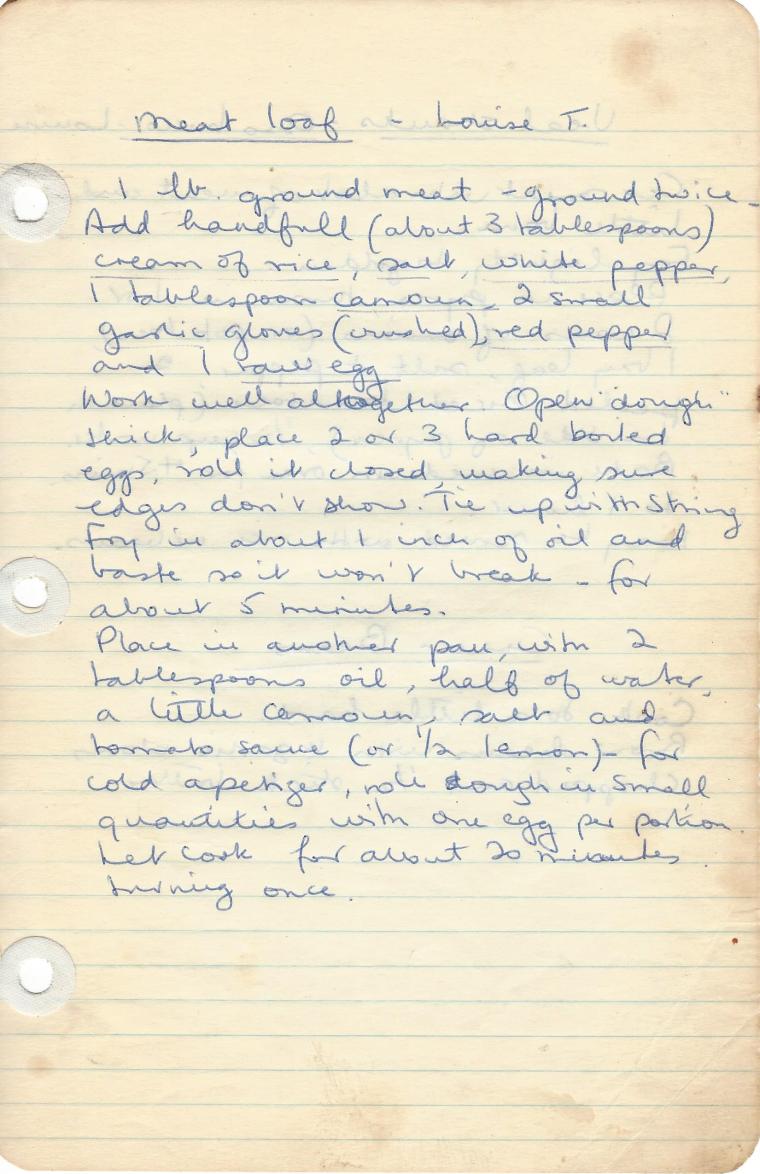 Meat loaf - Louise T.
1 lb. ground meat - ground twice -
Add handfull (about 3 tablespoons)
cream of rice, salt, white pepper,
1 tablespoon camoun, 2 small
garlic gloves (crushed), red pepper
and 1 raw egg
Work well altogether Open "dough"
thick, place 2 or 3 hard boiled
eggs, roll it closed, making sure
edges don't show. Tie up with String
Fry in about 1 inch of oil and
baste so it won't break - for
about 5 minutes.
Place in another pan, with 2
tablespoons oil, half of water,
a little camoun, salt and
tomato sauce (or 1/2 lemon) - for
cold apetizer, roll dough in small
quantities with one egg per portion.
Let cook for about 20 minutes
turning once.